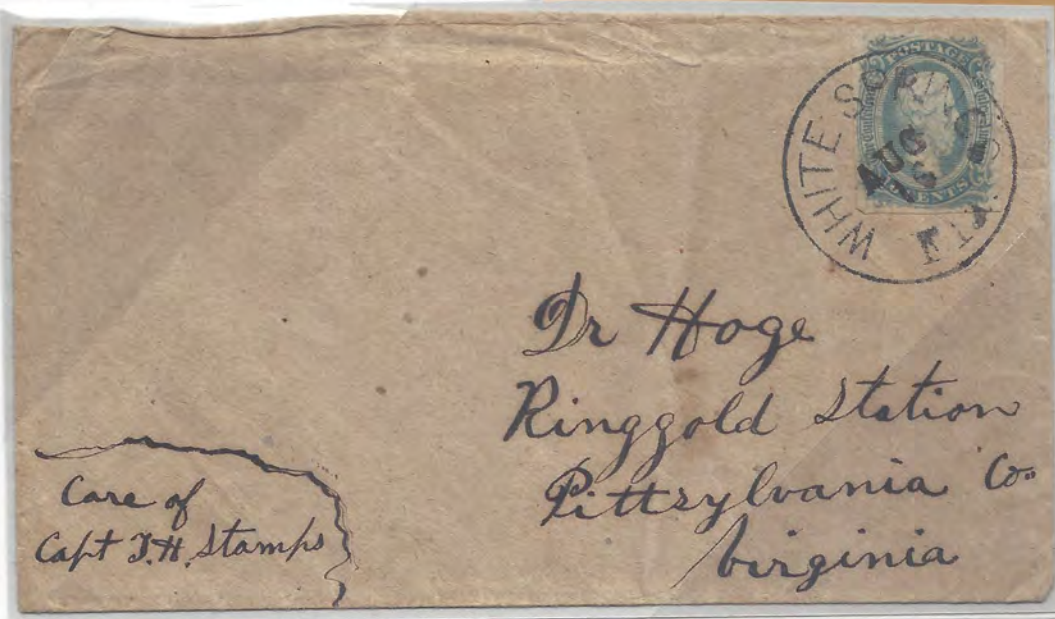 POSTAGE
CENTS
WHITE SPRINGS
AUG
Dr Hoge
Ringgold Station
Pittsylvania Co.
Virginia
Care of
Capt T.H. Stamps